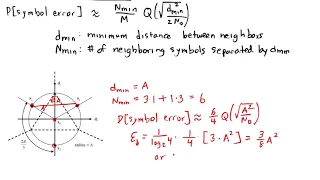 P[symbol error] ≈ Nmin/M Q(√(d²min/2N₀))
dmin: minimum distance between neighbors
Nmin: # of neighboring symbols separated by dmin
dmin = A
Nmin = 3·1 + 1·3 = 6
P[symbol error] ≈ 6/4 Q(√(A²/N₀))
radius = A
Eb = 1/log₂4 · 1/4 · [3·A²] = 3/8 A²
or